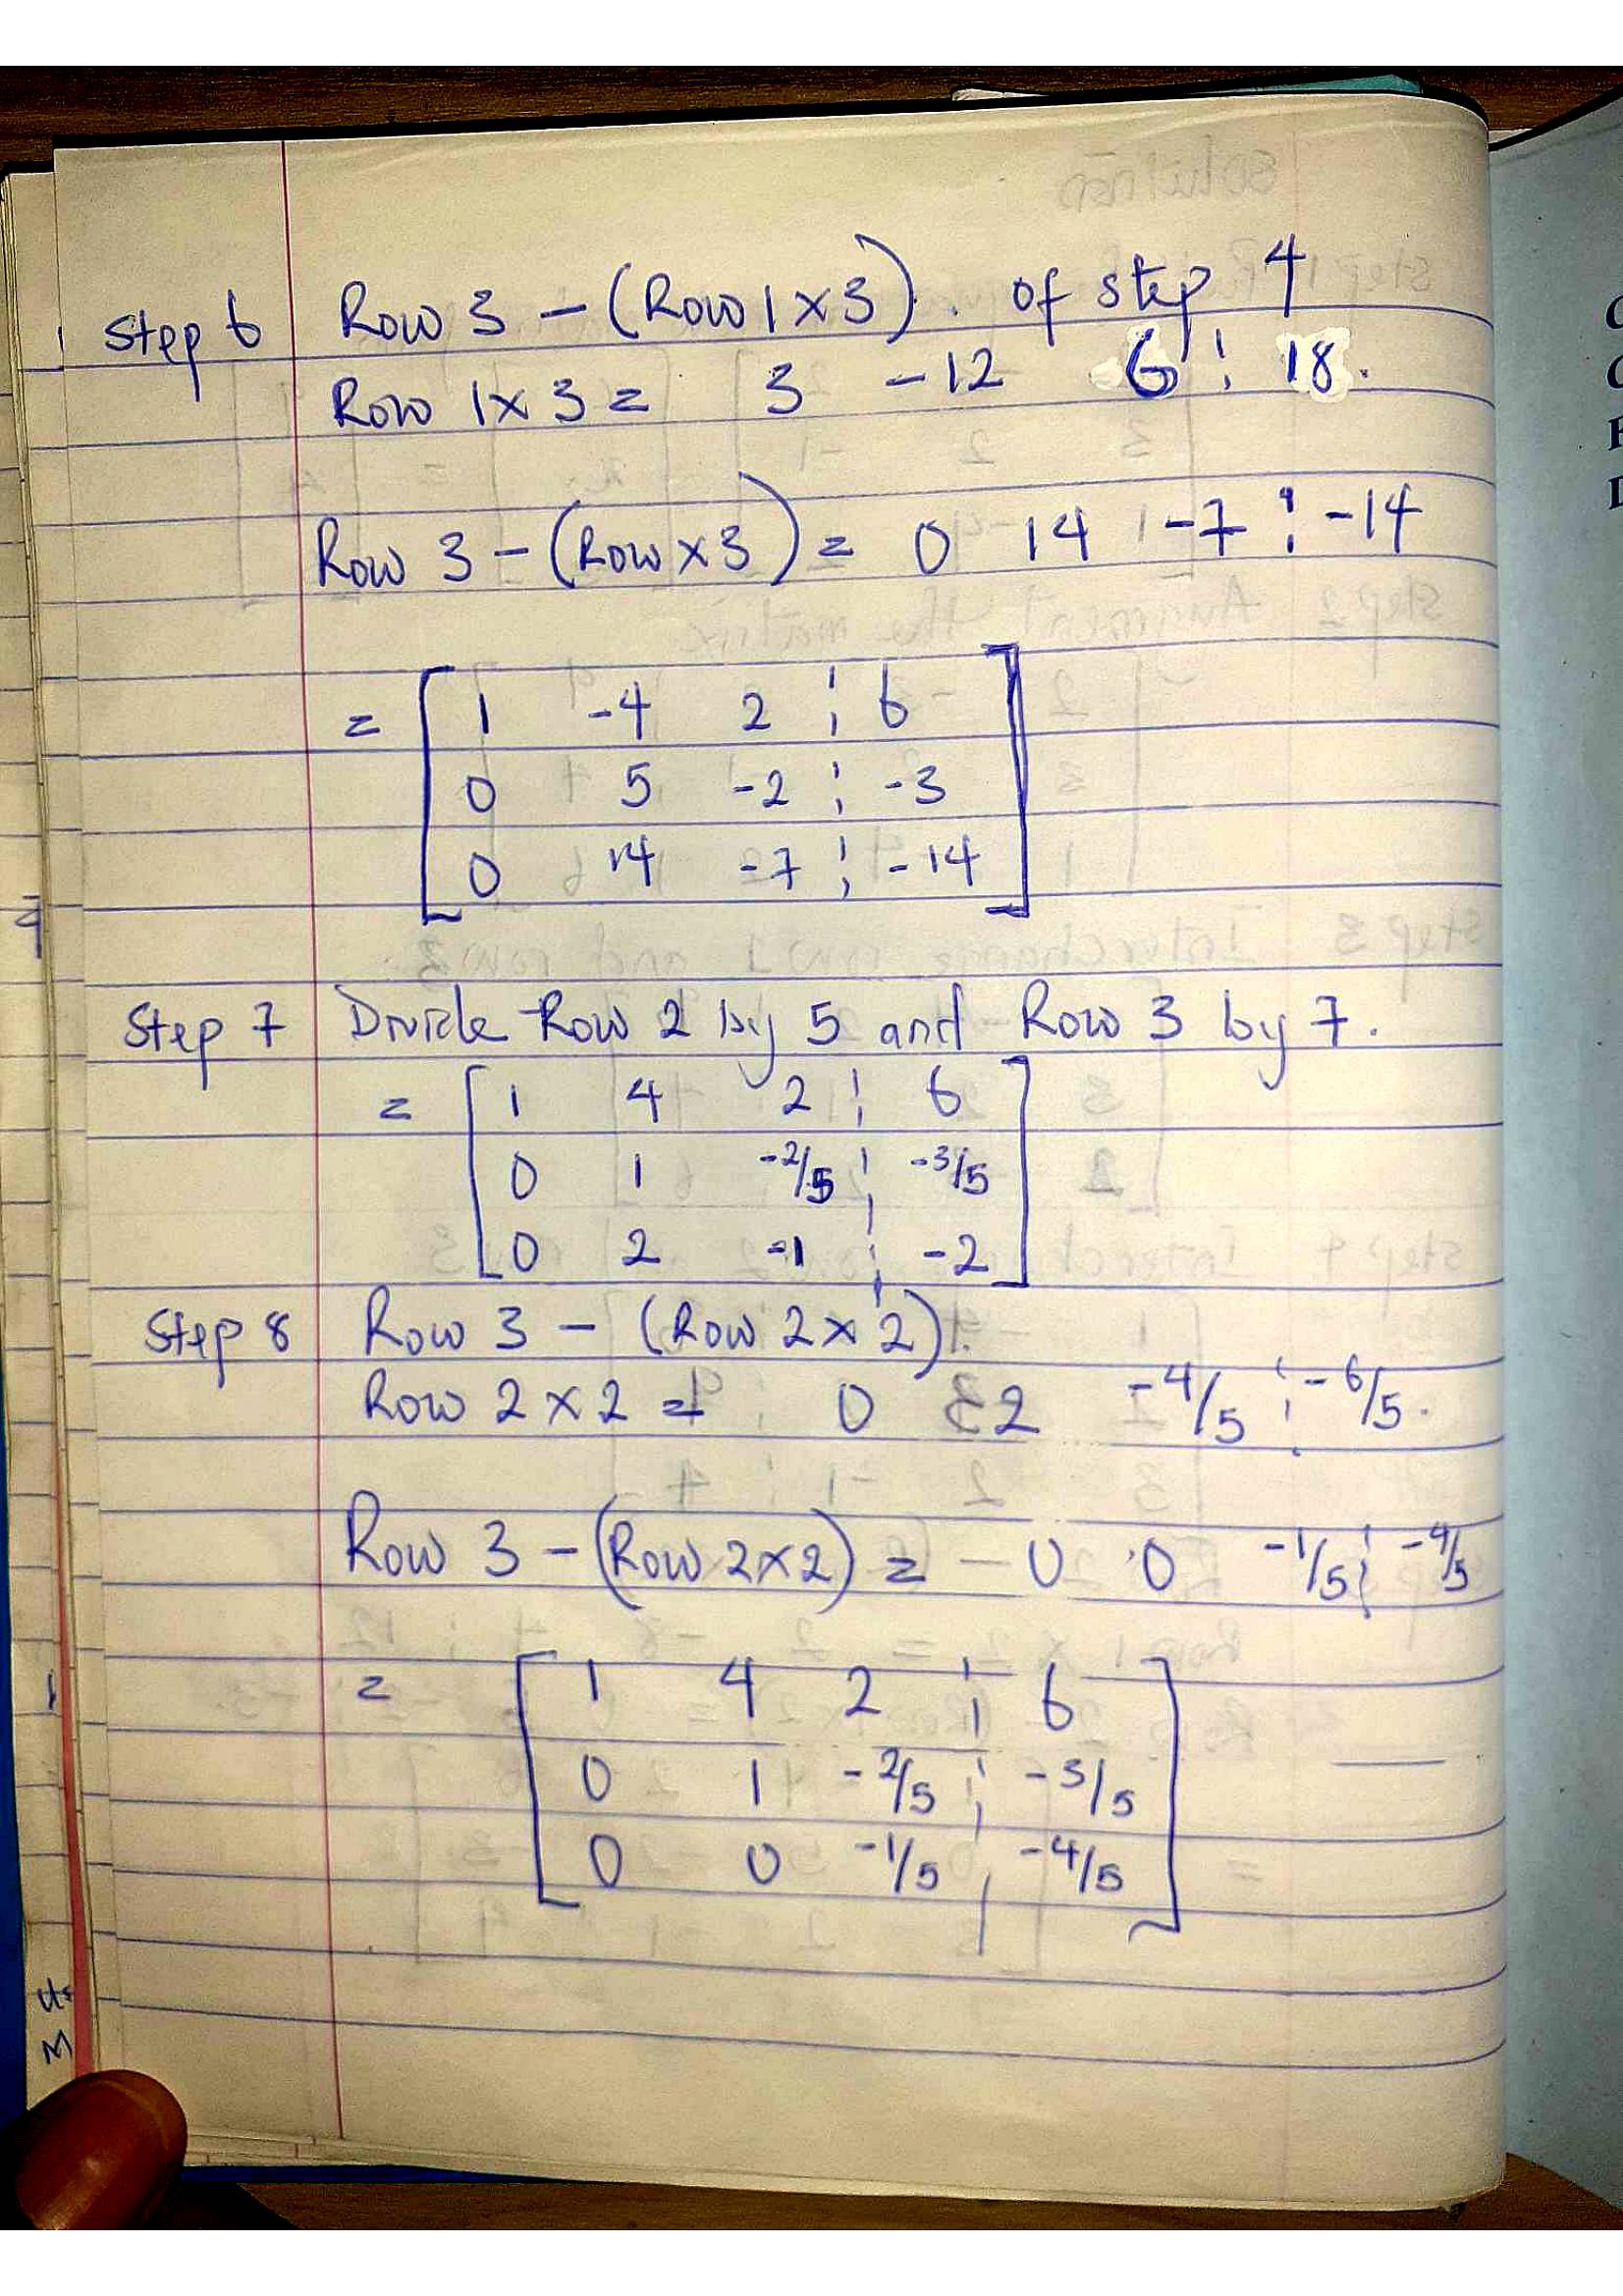 Step 6 Row 3 - (Row 1 x 3). of step 4
Row 1 x 3 = 3 -12 6 ¦ 18.
Row 3 - (Row x 3) = 0 14 -7 ¦ -14
= [ 1 -4 2 ¦ 6
0 5 -2 ¦ -3
0 14 -7 ¦ -14 ]
Step 7 Divide Row 2 by 5 and Row 3 by 7.
= [ 1 4 2 ¦ 6
0 1 -2/5 ¦ -3/5
0 2 -1 ¦ -2 ]
Step 8 Row 3 - (Row 2 x 2).
Row 2 x 2 = 0 2 -4/5 ¦ -6/5.
Row 3 - (Row 2 x 2) = 0 0 -1/5 ¦ -4/5
= [ 1 4 2 ¦ 6
0 1 -2/5 ¦ -3/5
0 0 -1/5 ¦ -4/5 ]